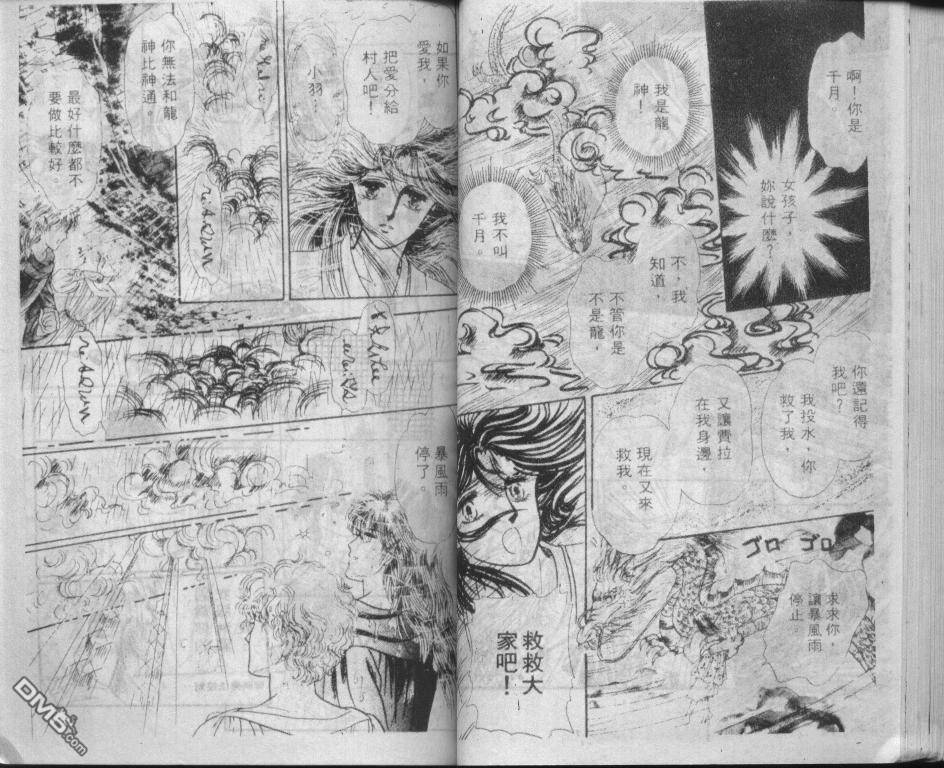 啊！你是
千月。
女孩子，
妳說什麼？
我是龍
神！
我不叫
千月。
不，我
知道，
不管你是
不是龍，
你還記得
我吧？
我投水，你
救了我，
又讓費拉
在我身邊，
現在又來
救我。
ゴロ ゴロ
求求你，
讓暴風雨
停止。
救救大
家吧！
如果你
愛我，
把愛分給
村人吧！
小羽…
你無法和龍
神比神通。
最好什麼都不
要做比較好。
暴風雨
停了。
DM5.com